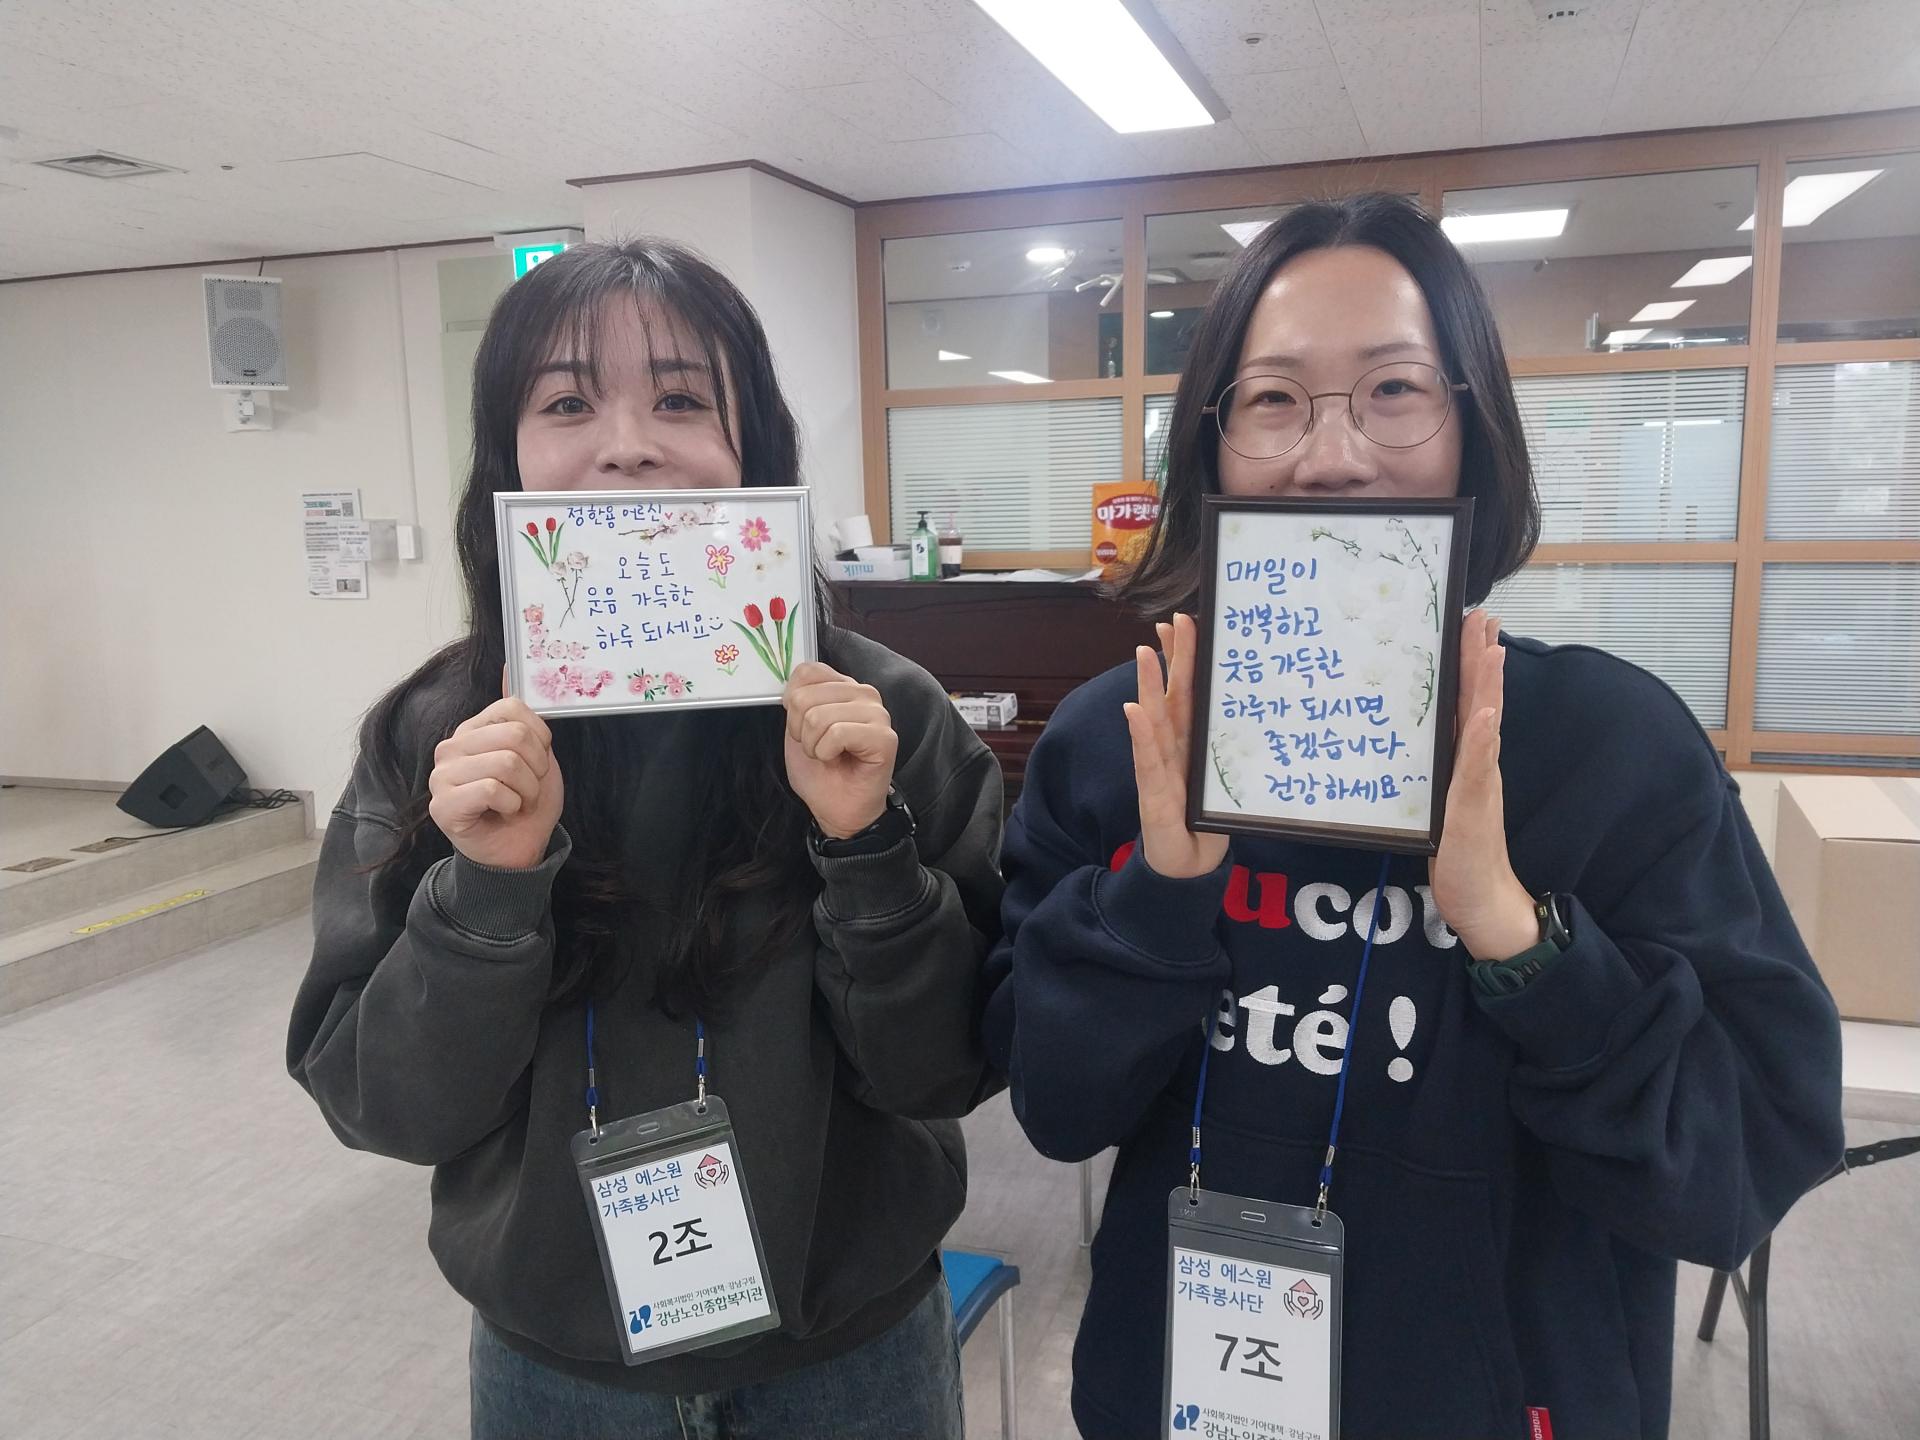 정한용 어르신♥
오늘도
웃음 가득한
하루 되세요
매일이
행복하고
웃음 가득한
하루가 되시면
좋겠습니다.
건강하세요^^
마가렛트
milk
ucou
eté!
삼성 에스원
가족봉사단
2조
사회복지법인 기아대책·강남구립
강남노인종합복지관
삼성 에스원
가족봉사단
7조
사회복지법인 기아대책·강남구립
강남노인종합복지관